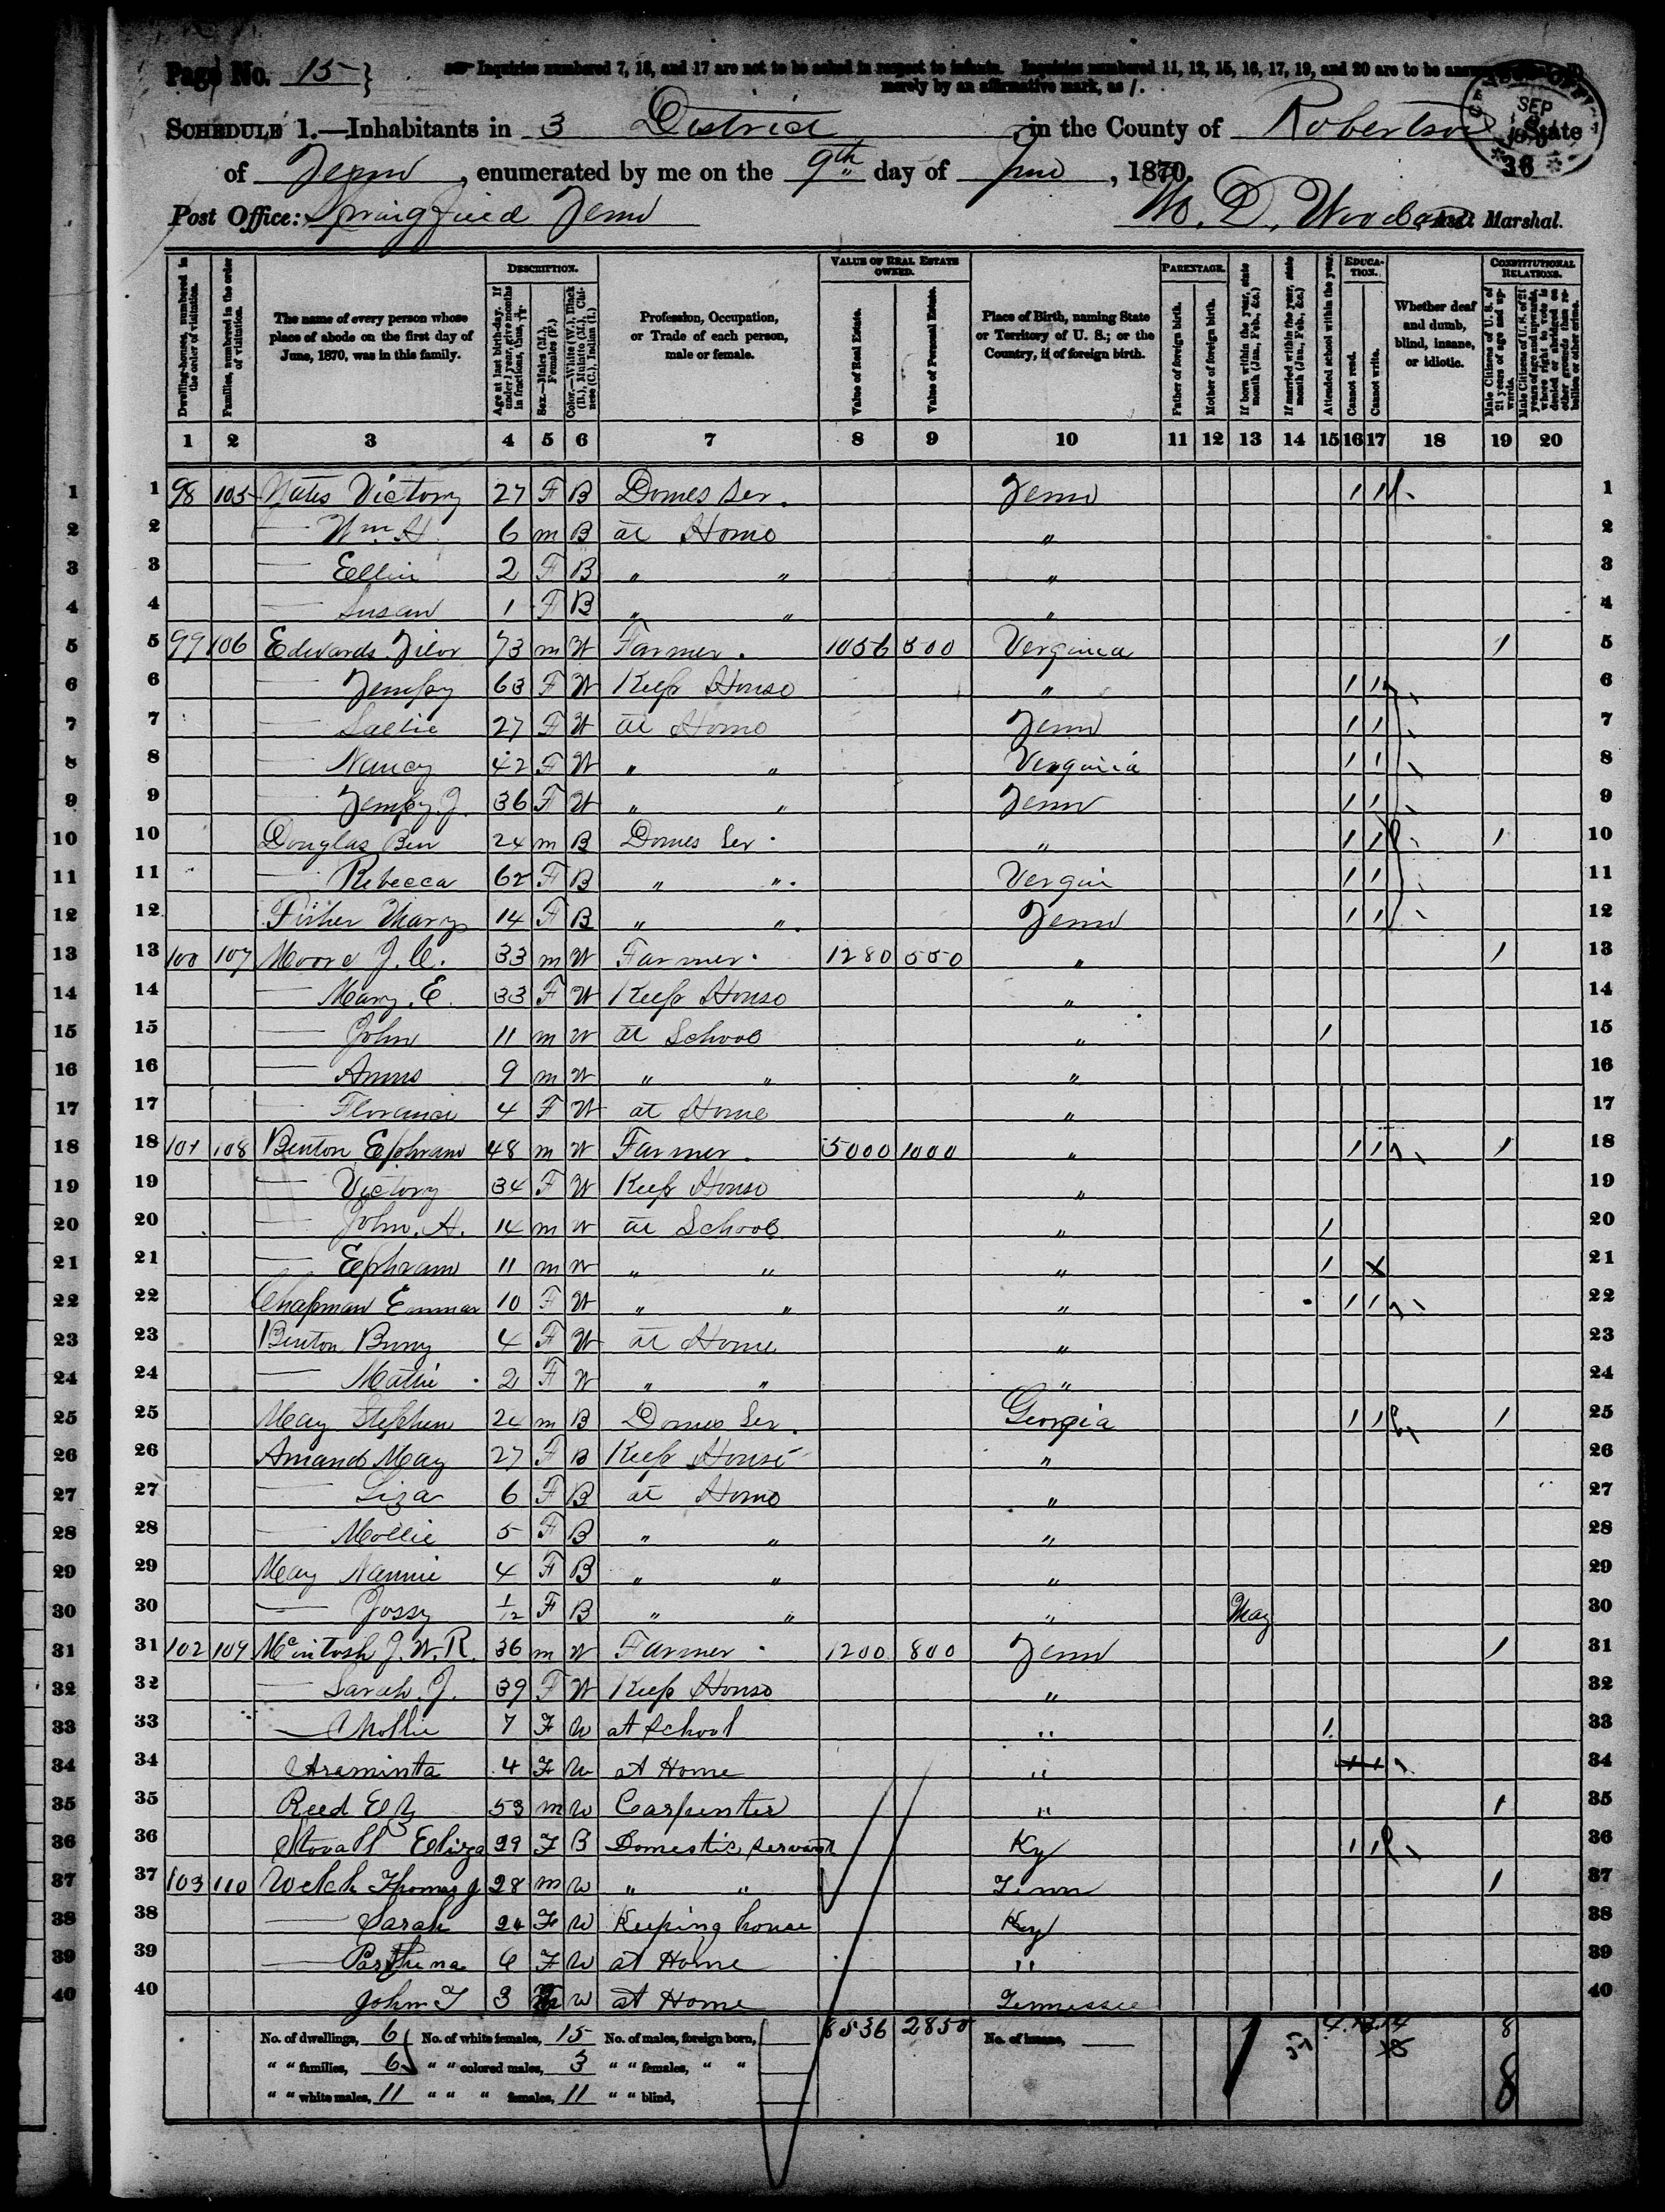 Page No. 15
Inquiries numbered 7, 16, and 17 are not to be asked in respect to infants. Inquiries numbered 11, 12, 15, 16, 17, 19, and 20 are to be
merely by an affirmative mark, as /.
SCHEDULE 1.—Inhabitants in 3 District, in the County of Robertson State
of Tenn, enumerated by me on the 9th day of June, 1870.
SEP
36
Post Office: Springfield Tenn
Ass't Marshal.
Dwelling-houses, numbered in the order of visitation.
Families, numbered in the order of visitation.
The name of every person whose place of abode on the first day of June, 1870, was in this family.
DESCRIPTION.
Age at last birth-day. If under 1 year, give months in fractions, thus, 3/12.
Sex.—Males (M.), Females (F.)
Color.—White (W.), Black (B.), Mulatto (M.), Chinese (C.), Indian (I.)
Profession, Occupation, or Trade of each person, male or female.
VALUE OF REAL ESTATE OWNED.
Value of Real Estate.
Value of Personal Estate.
Place of Birth, naming State or Territory of U. S.; or the Country, if of foreign birth.
PARENTAGE.
Father of foreign birth.
Mother of foreign birth.
If born within the year, state month (Jan., Feb., &c.)
If married within the year, state month (Jan., Feb., &c.)
Attended school within the year.
EDUCATION.
Cannot read.
Cannot write.
Whether deaf and dumb, blind, insane, or idiotic.
CONSTITUTIONAL RELATIONS.
Male Citizens of U. S. of 21 years of age and upwards.
Male Citizens of U. S. of 21 years of age and upwards, whose right to vote is denied or abridged on other grounds than rebellion or other crime.
1 2 3 4 5 6 7 8 9 10 11 12 13 14 15 16 17 18 19 20
1 98 105 Victory 27 F B Domes Ser. Tenn / / 1
2 — Wm. H 6 m B at Home " 2
3 — Ellin 2 F B " " " 3
4 — Susan 1 F B " " " 4
5 99 106 Edwards 73 m W Farmer. 1056 500 Verginia / 5
6 — Tempy 63 F W Keep House " / / 6
7 — Sallie 27 F W at Home Tenn / / 7
8 — Nancy 42 F W " " Verginia / / 8
9 — Tempy J. 36 F W " " Tenn / / 9
10 Douglas Ben 24 m B Domes Ser. " / / / 10
11 — Rebecca 62 F B " ". Vergin / / 11
12 Fisher Mary 14 F B " ". Tenn / / 12
13 100 107 Moore J. C. 33 m W Farmer. 1280 550 " / 13
14 — Mary. E. 33 F W Keep House " 14
15 — John 11 m W at School " / 15
16 — 9 m W " " " 16
17 — Florance 4 F W at Home " 17
18 101 108 Benton Ephram 48 m W Farmer. 5000 1000 " / / / 18
19 — Victory 34 F W Keep House " 19
20 — John. H. 14 m W at School " / 20
21 — Ephram 11 m W " " " / x 21
22 Chapman Emmar 10 F W " " " / / 22
23 Benton 4 F W at Home " 23
24 — Mattie 2 F W " " " 24
25 May Stephen 24 m B Domes Ser. Georgia / / / 25
26 Amand May 27 F B Keep House " 26
27 — Liza 6 F B at Home " 27
28 — Mollie 5 F B " " " 28
29 May Nannie 4 F B " " " 29
30 — Jossy 1/12 F B " " " May 30
31 102 109 McIntosh J. W. R. 36 m W Farmer. 1200 800 Tenn / 31
32 — Sarah. J. 39 F W Keep House " 32
33 — Mollie 7 F W at School " / 33
34 Araminta 4 F W at Home " / / 34
35 Reed 53 m W Carpenter " / 35
36 Stovall Eliza 29 F B Domestic servant Ky / / 36
37 103 110 Welch Thomas J 28 m W " " Tenn / 37
38 — Sarah 24 F W Keeping house Ky 38
39 — Parthena 6 F W at Home " 39
40 John T 3 m W at Home Tennessee 40
No. of dwellings, 6 No. of white females, 15 No. of males, foreign born, 8536 2850 No. of insane, 8
" " families, 6 " " colored males, 3 " " females, " "
" " white males, 11 " " " females, 11 " " blind, 8